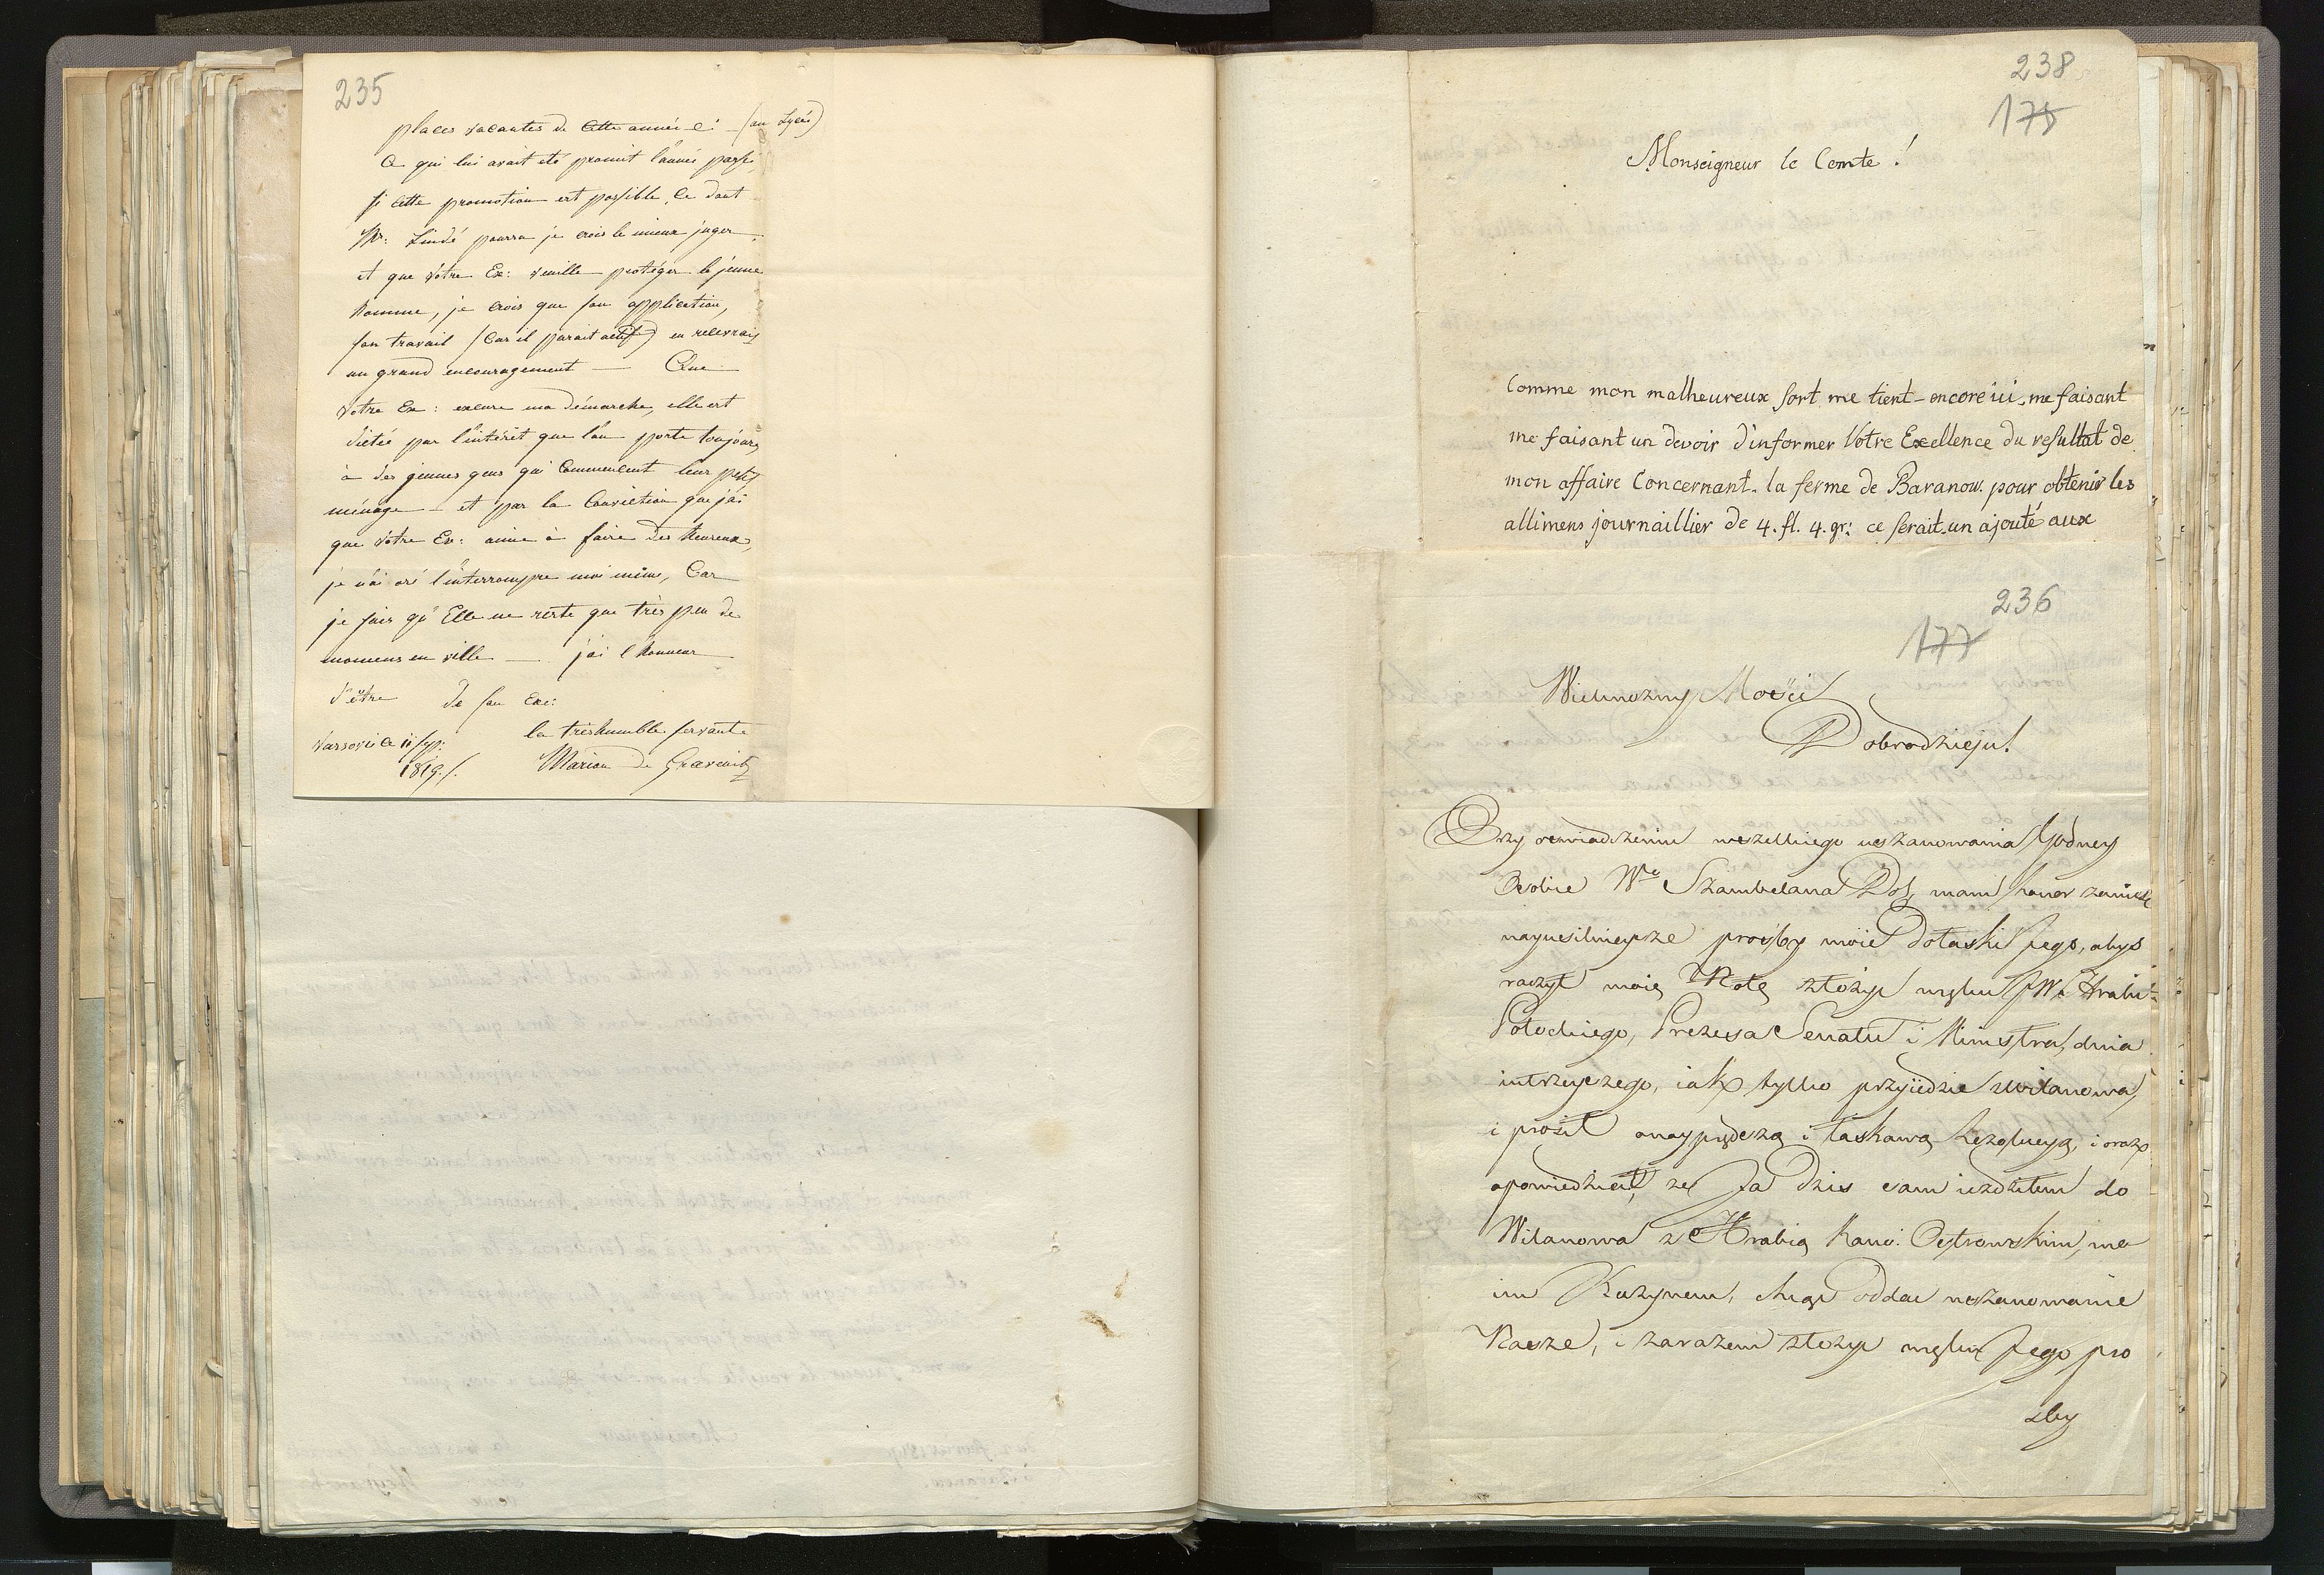 235
places vacantes de cette année-ci - (au Lycée)
ce qui lui avait eté promit l'année passé,
si cette promotion est possible, ce dont
Mr: Lindé pourra je crois le mieux juger
et que Votre Ex: veuille protéger le jeune
homme, je crois que son application,
son travail (car il parait actif) en recevrais
un grand encouragement — Que
Votre Ex: excuse ma démarche, elle est
dictée par l'intérêt que l'on porte toujours
à des jeunes gens qui commencent leur petit
ménage — et par la conviction que j'ai
que Votre Ex: aime à faire des heureux,
je n'ai osé l'interrompre moi même, car
je sais qu'Elle ne reste que très peu de
momens en ville — j'ai l'honneur
d'être de son Exe:
la très humble servante
Varsovie ce 11 sep:
1819./. Marion de
238
175
Monseigneur le Comte!
Comme mon malheureux sort me tient-encore ici, me faisant
me faisant un devoir d'informer Votre Excellence du resultat de
mon affaire Concernant la ferme de Baranow. pour obtenir les
allimens journaillier de 4. fl. 4. gr: ce serait un ajouté aux
236
177
Wielmożny Mości
Dobrodzieju!
Przy oswiadczeniu wszelkiego uszanowania Godney
Osobie We Szambelana Dob, mam honor zanieść
nayusilnieysze prośby moie do łaski Jego, abyś
raczył moią Notę złożyć w ręku JW. Hrabi
Potockiego, Prezesa Senatu i Ministra, dnia
iutrzeyszego, iak tylko przyiedzie z Wilanowa,
i prosił o nayprędszą i łaskawą Rezolucyą, i oraz
opowiedzieć, że Ja dziś sam iezdziłem do
Wilanowa z Hrabią Kanc: Ostrowskim, mo
im Kuzynem, chcąc oddać uszanowanie
Nasze, i zarazem złożyć w ręku Jego pro
sby